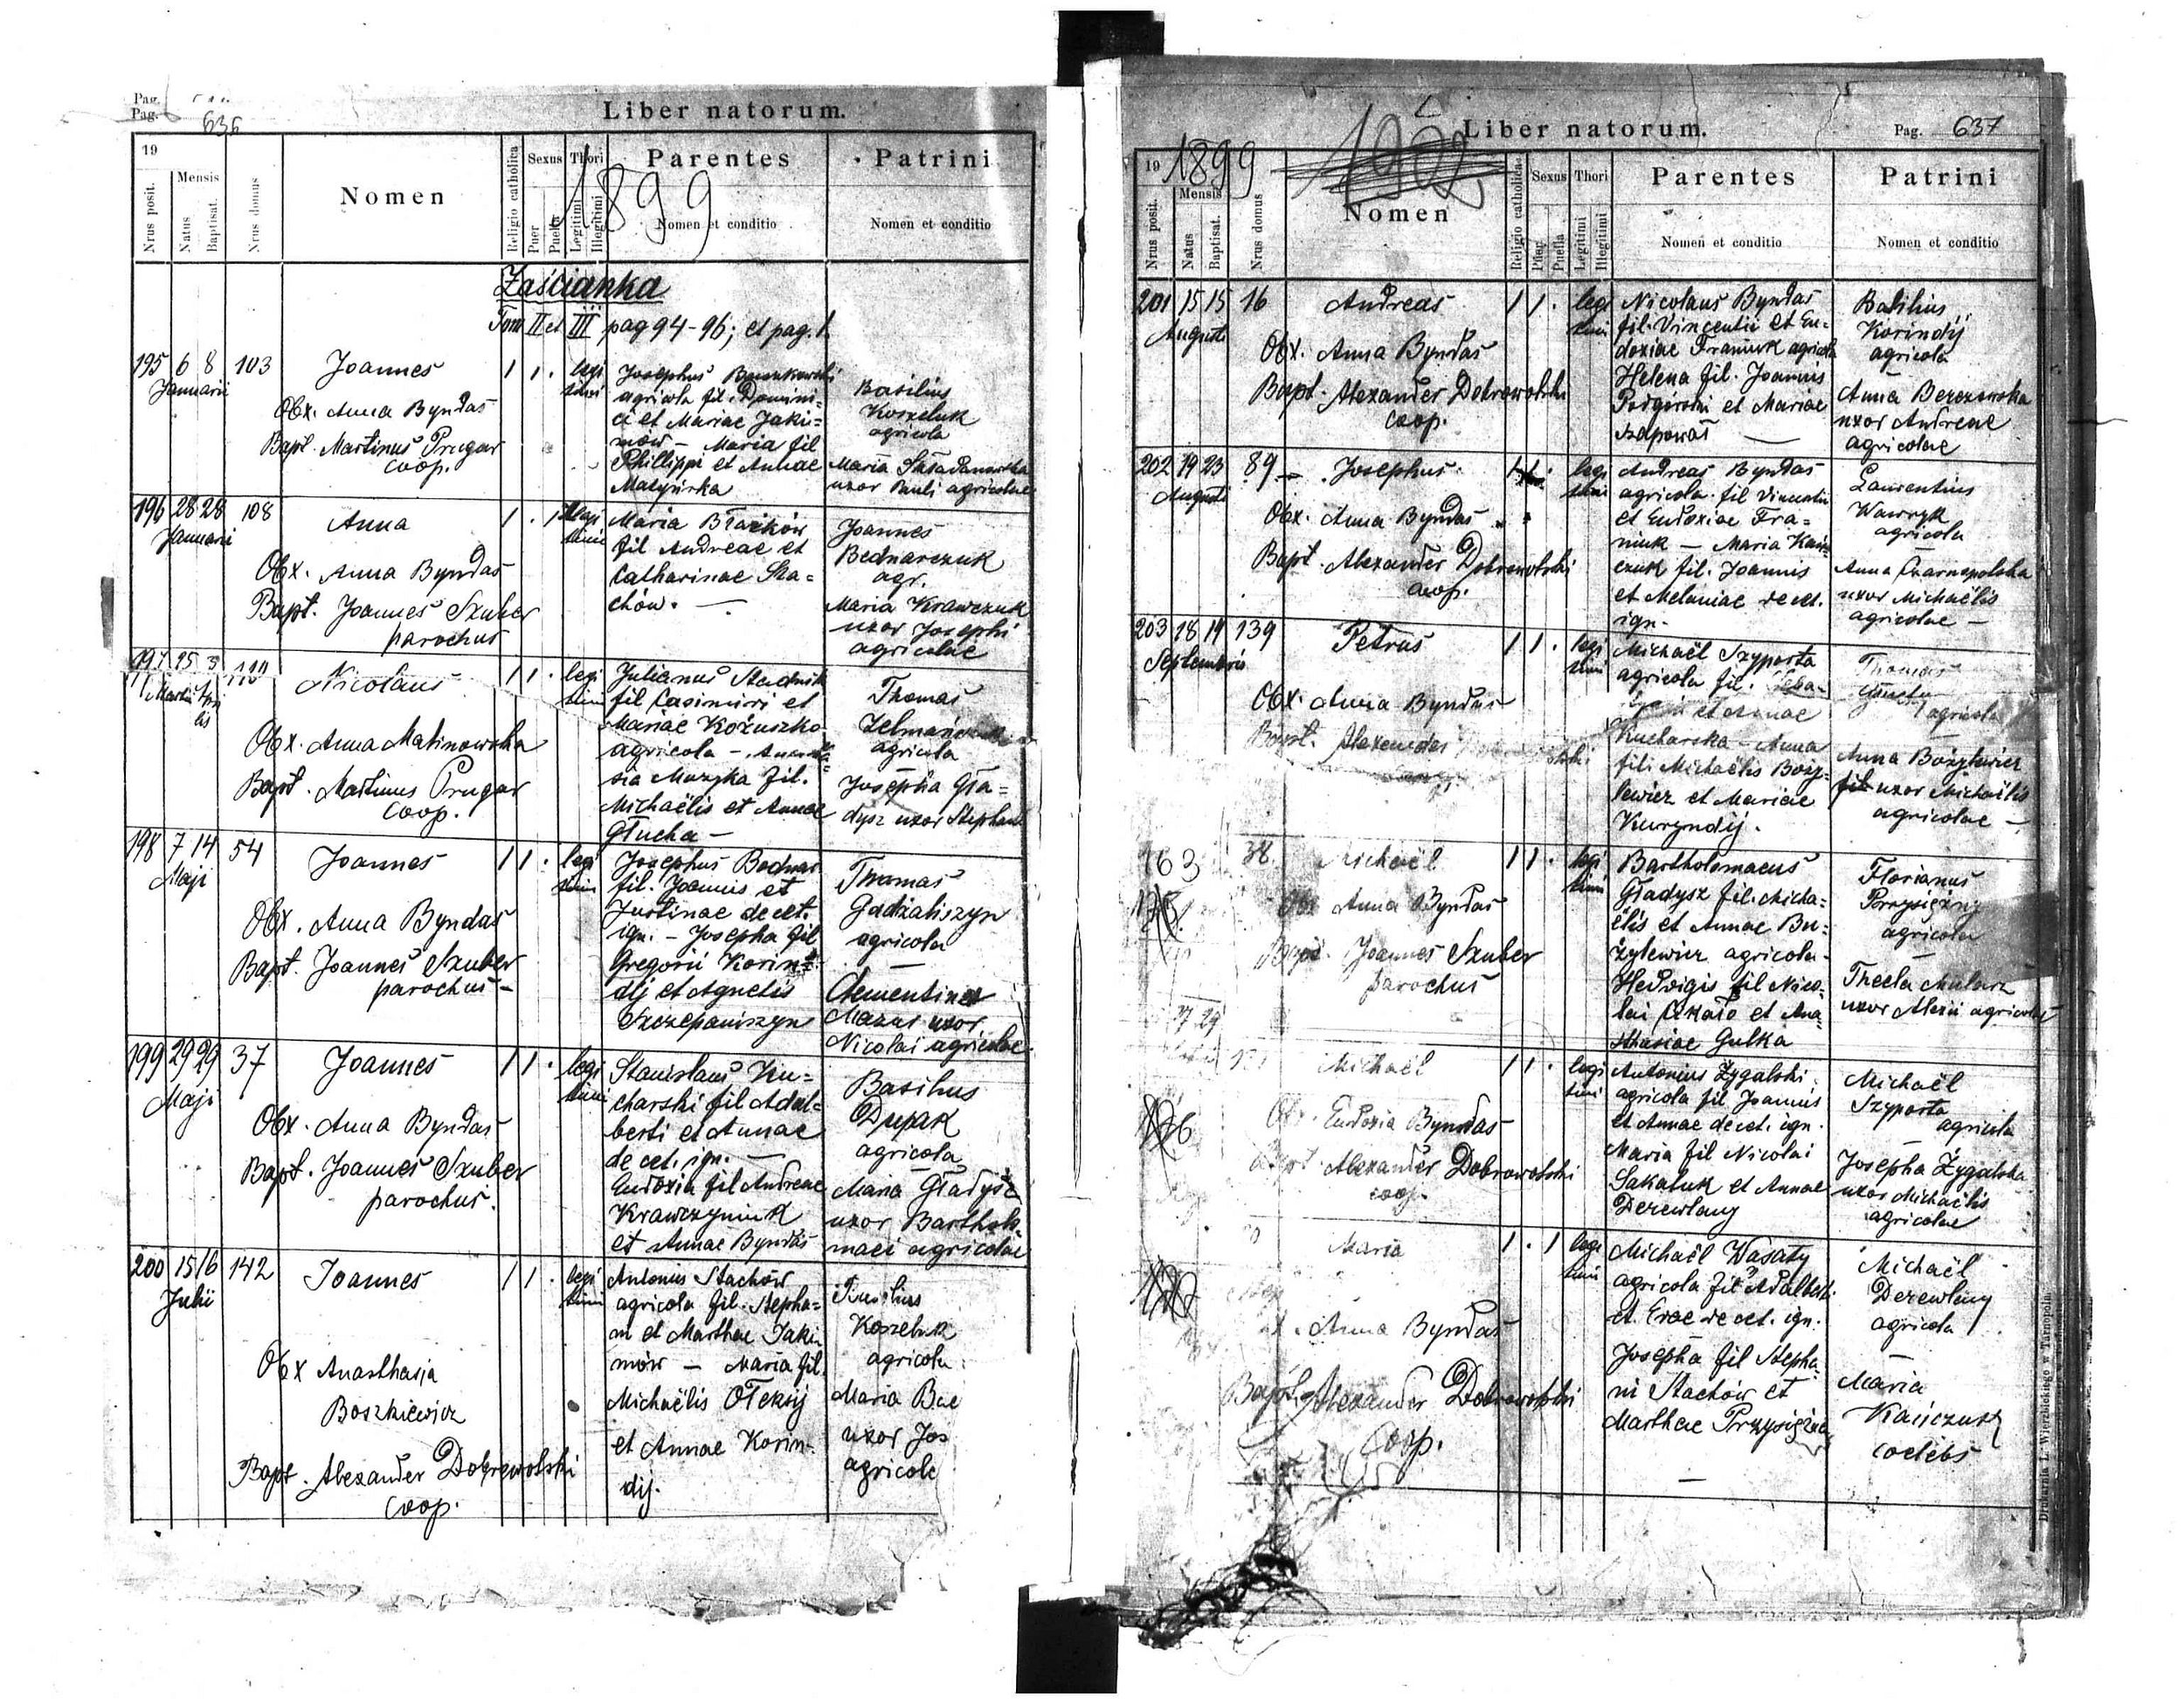 Pag.
Pag. 636
Liber natorum.
19
Nrus posit.
Mensis
Natus
Baptisat.
Nrus domus
Nomen
Religio catholica
Sexus
Puer
Puella
Thori
Legitimi
Illegitimi
1899
Parentes
Nomen et conditio
Patrini
Nomen et conditio
Zaścianka
Tom II et III pag 94-96; et pag. 1
195 6 8 103 Joannes 1 1 . legi
Januarii timi
Obx. Anna Byndas
Bapt. Martinus Prugar
coop.
Josephus
agricola fil. Domini=
ci et Mariae Jaki=
mów - Maria fil
Phillippi et Annae
Matyńska
Basilius
Koszeluk
agricola
Maria
uxor Pauli agricolae
196 28 28 108 Anna 1 . 1 legi
Januarii timi
Obx. Anna Byndas
Bapt. Joannes Szuber
parochus
Maria Błażków
fil Andreae et
Catharinae Sta=
chów. —
Joannes
Bednarczuk
agr.
Maria Krawczuk
uxor Josephi
agricolae
197 25 3 Nicolaus 1 1 . legi
Martii Apri timi
lis
Obx. Anna Malinowska
Bapt. Martinus Prugar
coop.
Julianus Stadnik
fil Casimiri et
Mariae Kożuszko
agricola - Anasta=
sia Muzyka fil.
Michaëlis et Annae
Głucha -
Thomas
agricola
Josepha Gła=
dysz uxor Stephani
198 7 14 54 Joannes 1 1 . legi
Maji timi
Obx. Anna Byndas
Bapt. Joannes Szuber
parochus -
Josephus Bednar
fil. Joannis et
Justinae de cet.
ign. - Josepha fil
Gregorii Korin=
dij et Agnetis
Szczepaniszyn
Thomas
Gadzaliszyn
agricola
Clementina
Mazur uxor
Nicolai agricolae
199 29 29 37 Joannes 1 1 . legi
Maji timi
Obx. Anna Byndas
Bapt. Joannes Szuber
parochus.
Stanislaus Ku=
charski fil Adal=
berti et Annae
de cet. ign. —
Eudoxia fil Andreae
Krawczyniuk
et Annae Byndas
Basilius
Dupak
agricola
Maria Gładysz
uxor Bartholo
maei agricolae
200 15 16 142 Joannes 1 1 . legi
Julii timi
Obx Anasthasia
Boszkiewicz
Bapt. Alexander Dobrowolski
coop.
Antonius Stachów
agricola fil. Stepha=
ni et Marthae Jaki
mów - Maria fil
Michaëlis Ołeksij
et Annae Korin=
dij.
Koszeluk
agricola
Maria
uxor Jos
agricol
Liber natorum.
Pag. 637
19 1899
Nrus posit.
Mensis
Natus
Baptisat.
Nrus domus
Nomen
Religio catholica
Sexus
Puer
Puella
Thori
Legitimi
Illegitimi
Parentes
Nomen et conditio
Patrini
Nomen et conditio
201 15 15 16 Andreas 1 1 . legi
Augusti timi
Obx. Anna Byndas
Bapt. Alexander Dobrowolski
coop.
Nicolaus Byndas
fil. Vincentii et Eu=
doxiae Franiuk agricola
Helena fil. Joannis
Podgórski et Mariae
Szdpowas —
Basilius
Korindij
agricola
Anna Berezowska
uxor Andreae
agricolae
202 19 23 89 - Josephus legi
Augusti timi
Obx. Anna Byndas
Bapt. Alexander Dobrowolski
coop.
Andreas Byndas
agricola fil Vincentii
et Eudoxiae Fra=
niuk - Maria
czuk fil. Joannis
et Melaniae de cet.
ign.
Laurentius
Wawryk
agricola
Anna Czarnopolska
uxor Michaëlis
agricolae -
203 18 19 139 Petrus 1 1 . legi
Septembris timi
Obx. Anna Byndas
Bapt. Alexander
Michaël Szyporta
agricola fil.
et Annae
Kucharska - Anna
fili Michaëlis Boży=
lewicz et Mariae
Kuryndij.
Thomas
agricola
Anna Bożylewicz
uxor Michaëlis
agricolae -
38 Michaël 1 1 . legi
timi
Obx Anna Byndas
Bapt. Joannes Szuber
parochus
Bartholomaeus
Gładysz fil. Micha=
ëlis et Annae Bu=
żylewicz agricola -
Hedvigis fil Nico=
lai et Ana=
sthasiae Gulka
Florianus
Przysiężny
agricola
Thecla Mularz
uxor Alexii agricolae
27 29 Michaël 1 1 . legi
timi
Eudoxia Byndas
Alexander Dobrowolski
coop.
Antonius Zygalski
agricola fil Joannis
et Annae de cet. ign.
Maria fil Nicolai
Sakaluk et Annae
Derewlany
Michaël
Szyporta
agricola
Josepha Żygalska
uxor Michaëlis
agricolae
Maria 1 . 1 legi
timi
Anna Byndas
Bapt. Alexander Dobrowolski
Coop.
Michaël Wasaty
agricola fil Adalberti
et Evae de cet. ign.
Josepha fil Stepha
ni Stachów et
Marthae
—
Michaël
Derewlany
agricola
Maria
Kańczuk
coelebs
Drukarnia L. Wierzbickiego w Tarnopolu.